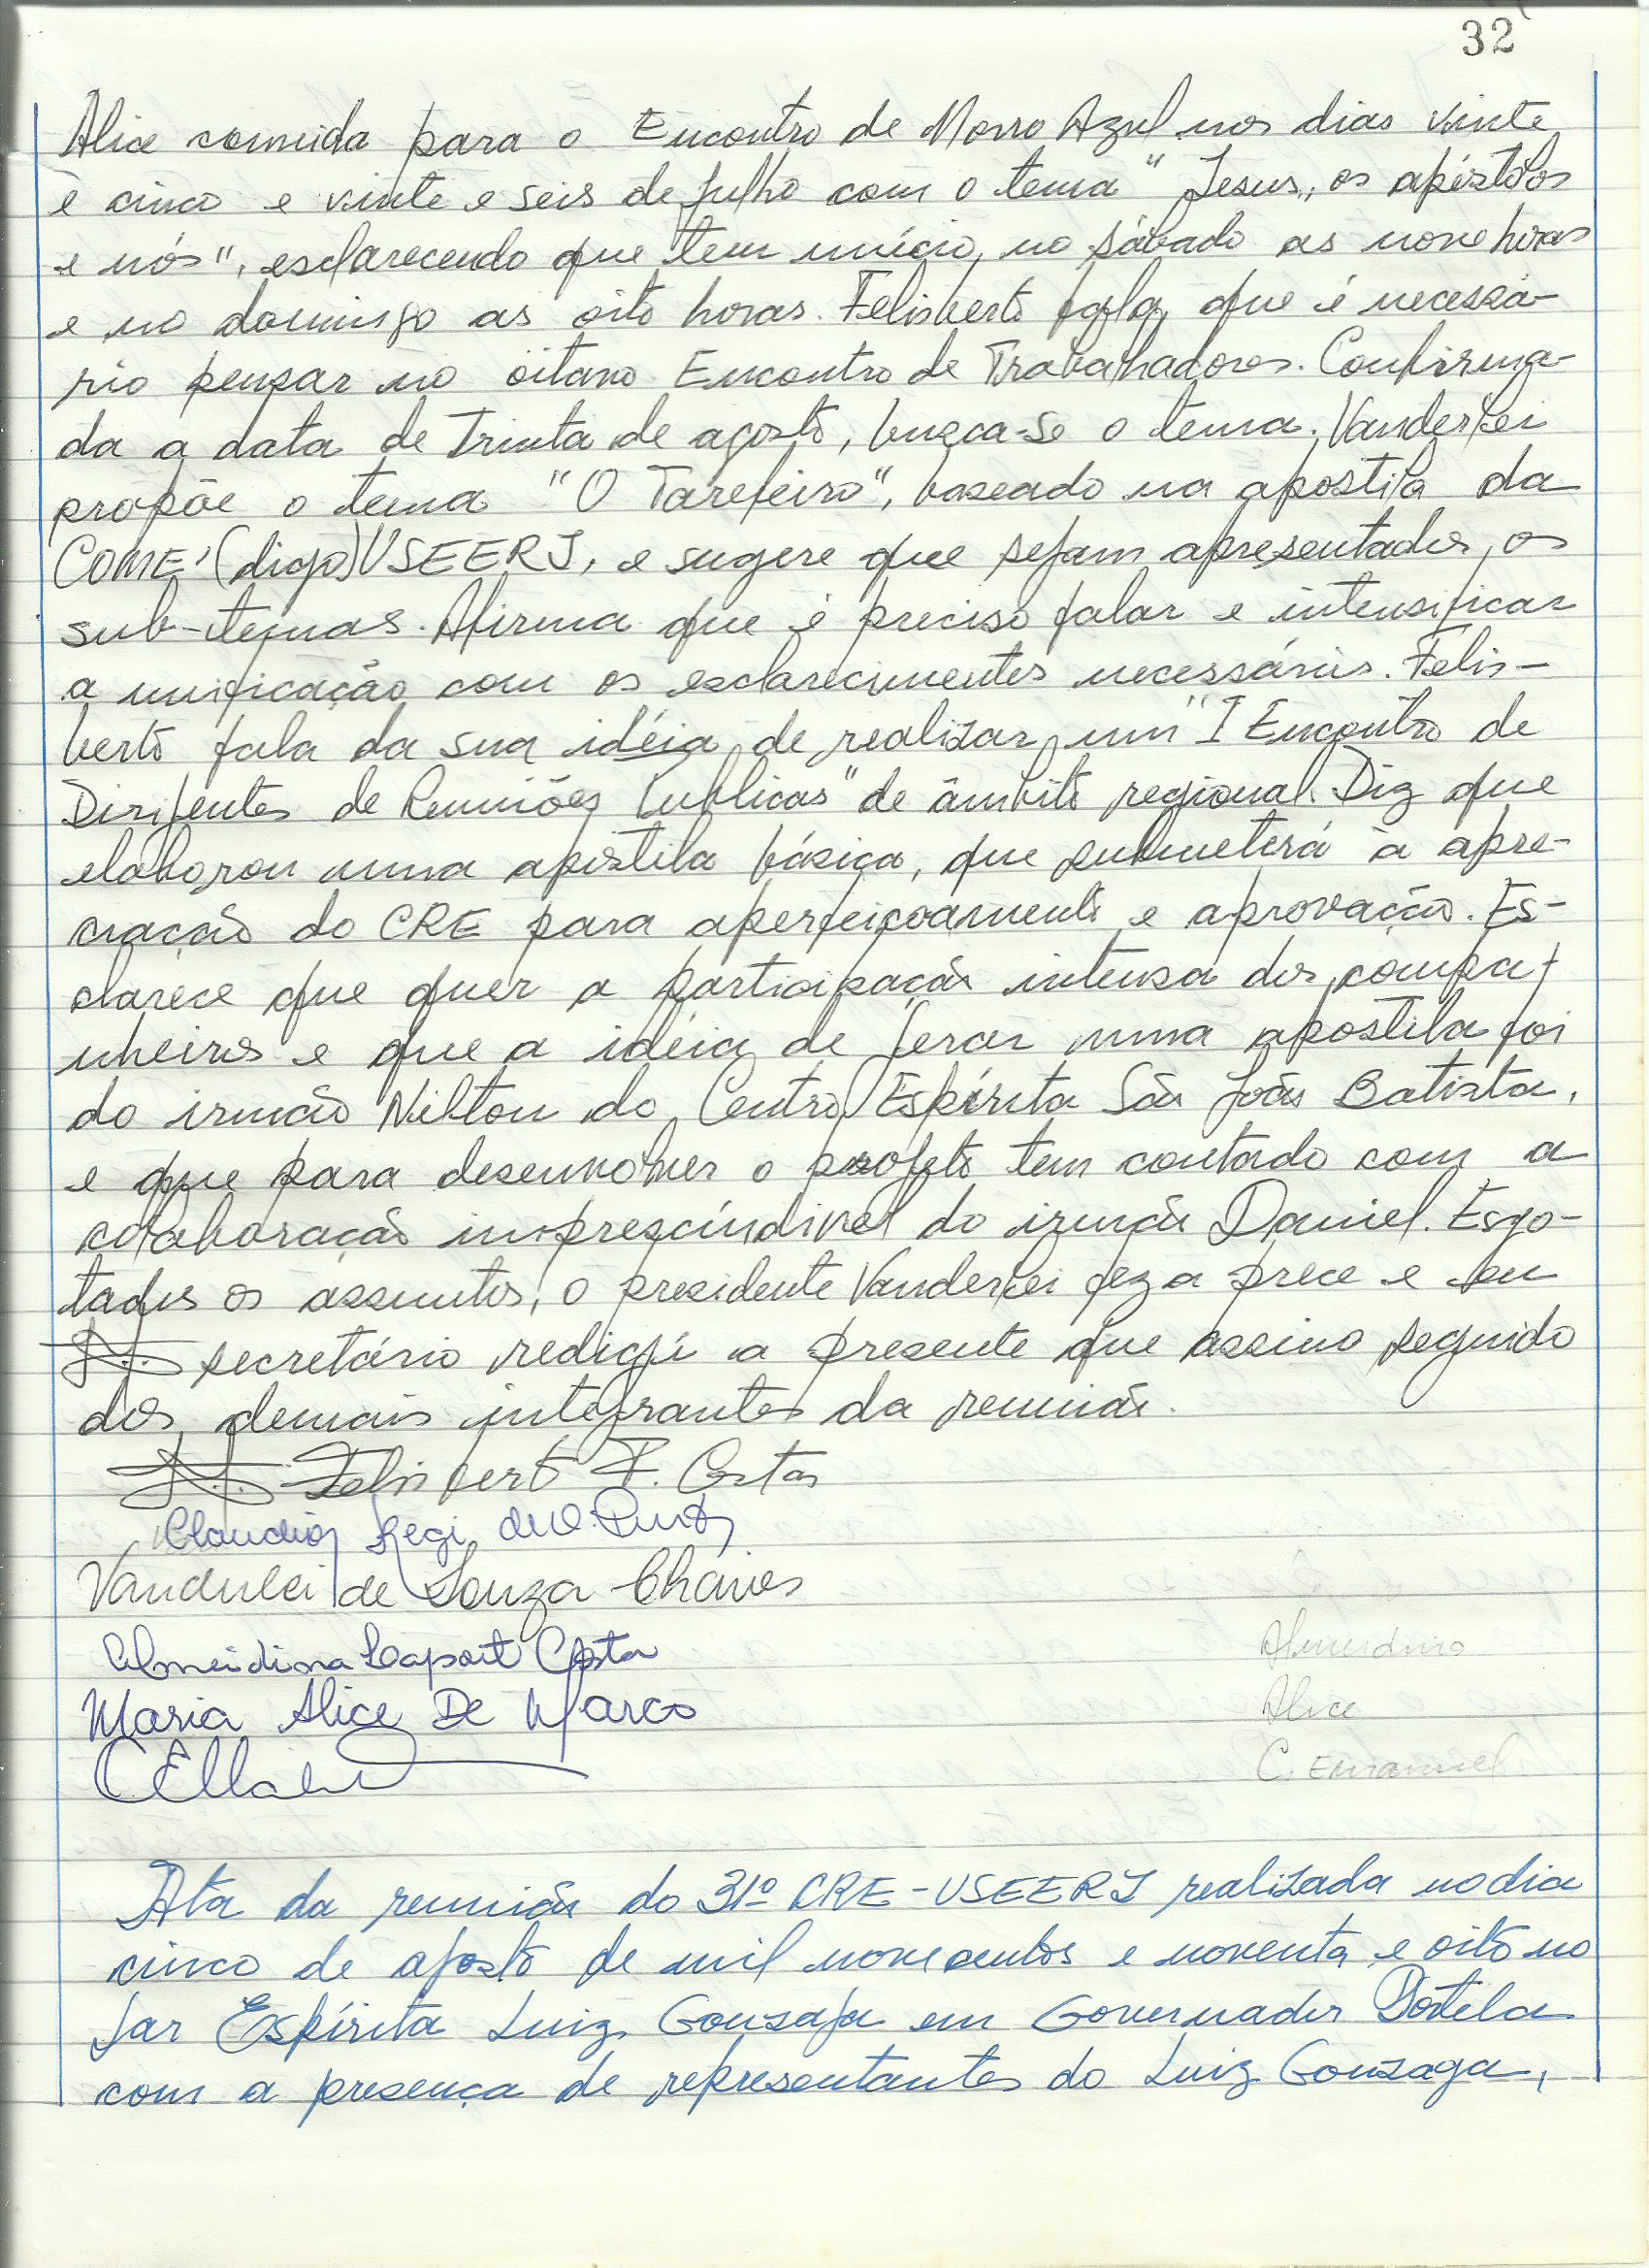 32
Alice convida para o Encontro de Morro Azul nos dias vinte
e cinco e vinte e seis de julho com o tema "Jesus, os apóstolos
e nós", esclarecendo que tem início, no sábado as nove horas
e no domingo as oito horas. Felisberto fala que é necessá-
rio pensar no oitavo Encontro de Trabalhadores. Confirma-
da a data de Trinta de agosto, busca-se o tema. Vanderlei
propõe o tema "O Tarefeiro", baseado na apostila da
COME, (digo) USEERJ, e sugere que sejam apresentados os
sub-temas. Afirma que é preciso falar e intensificar
a unificação com os esclarecimentos necessários. Felis-
berto fala da sua idéia de realizar um "I Encontro de
Dirigentes de Reuniões Públicas" de âmbito regional. Diz que
elaborou uma apostila básica, que submeterá à apre-
ciação do CRE para aperfeiçoamento e aprovação. Es-
clarece que quer a participação intensa dos compa-
nheiros e que a idéia de gerar uma apostila foi
do irmão Nilton do Centro Espírita São João Batista,
e que para desenvolver o projeto tem contado com a
colaboração imprescíndivel do irmão Daniel. Esgo-
tados os assuntos, o presidente Vanderlei fez a prece e eu
secretário redigí a presente que assino seguido
dos demais integrantes da reunião.
Felisberto F. Costa
Claudia Regi
Vanderlei de Souza Chaves
Almeidina Laport Costa
Almerdina
Maria Alice De Marco
Alice
C. Emanuel
Ata da reunião do 31º CRE-USEERJ realizada no dia
cinco de agosto de mil novecentos e noventa e oito no
Lar Espírita Luiz Gonzaga em Governador Portela
com a presença de representantes do Luiz Gonzaga,